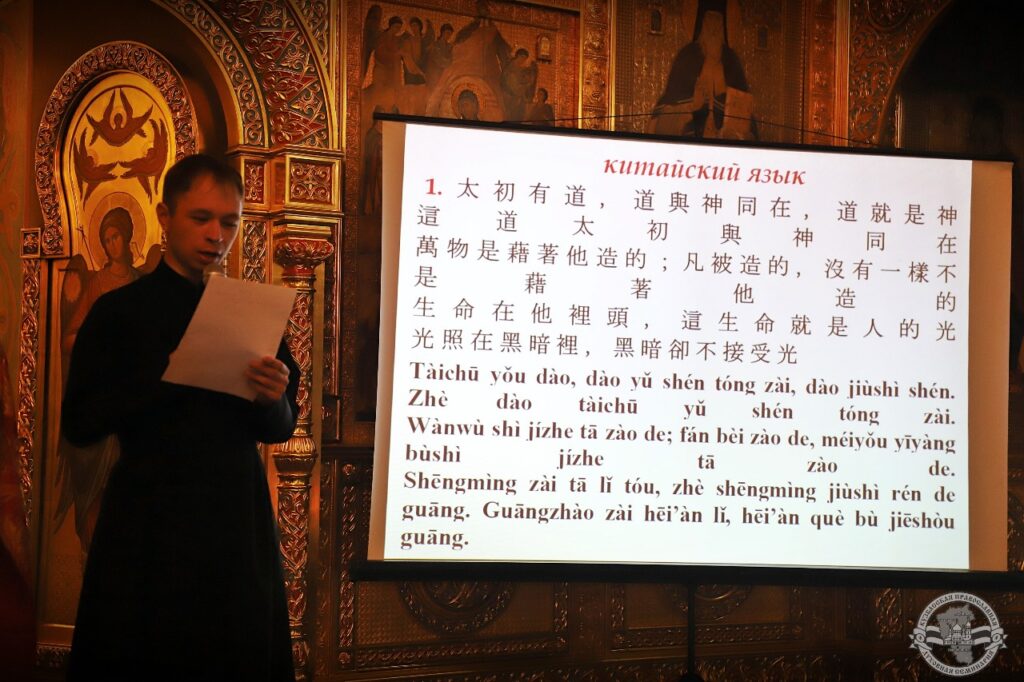 китайский язык
1. 太初有道，道與神同在，道就是神
這道太初與神同在
萬物是藉著他造的；凡被造的，沒有一樣不
是藉著他造的
生命在他裡頭，這生命就是人的光
光照在黑暗裡，黑暗卻不接受光
Tàichū yǒu dào, dào yǔ shén tóng zài, dào jiùshì shén.
Zhè dào tàichū yǔ shén tóng zài.
Wànwù shì jízhe tā zào de; fán bèi zào de, méiyǒu yīyàng
bùshì jízhe tā zào de.
Shēngmìng zài tā lǐ tóu, zhè shēngmìng jiùshì rén de
guāng. Guāngzhào zài hēi’àn lǐ, hēi’àn què bù jiēshòu
guāng.
ДУХОВНАЯ СЕМИНАРИЯ